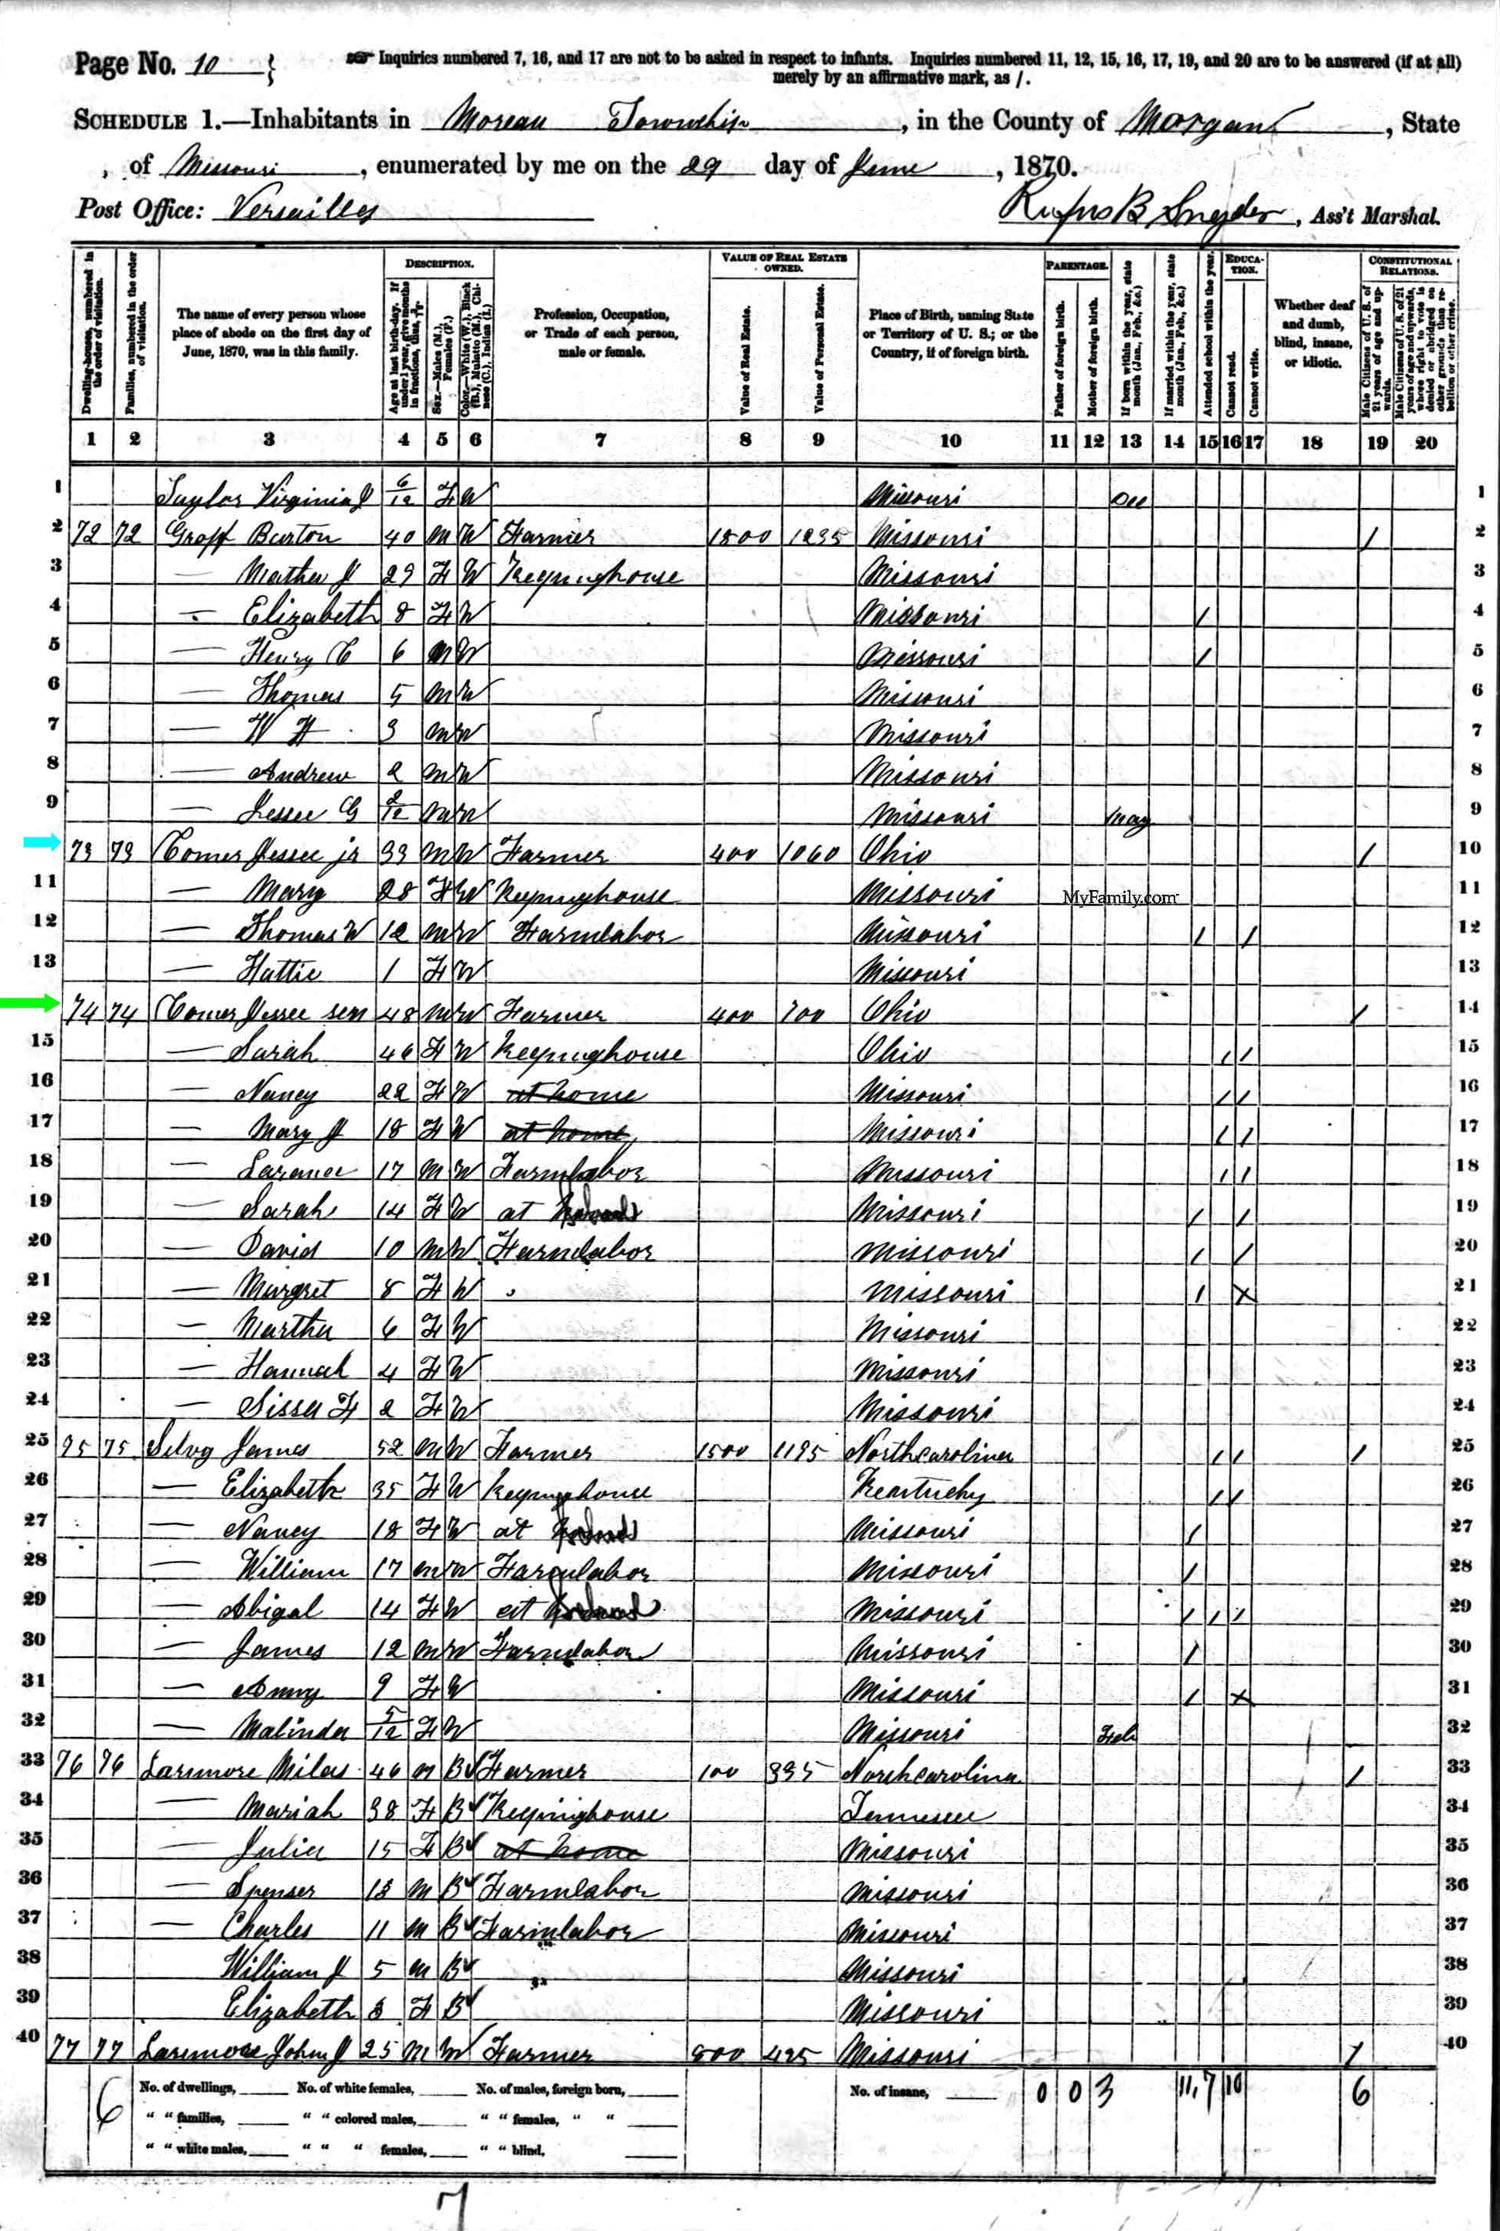 Page No. 10 } Inquiries numbered 7, 16, and 17 are not to be asked in respect to infants. Inquiries numbered 11, 12, 15, 16, 17, 19, and 20 are to be answered (if at all)
merely by an affirmative mark, as /.
SCHEDULE 1.—Inhabitants in Moreau Township, in the County of Morgan, State
of Missouri, enumerated by me on the 29 day of June, 1870.
Post Office: Versailles Rufus B Snyder, Ass't Marshal.
Dwelling-houses, numbered in the order of visitation.
Families, numbered in the order of visitation.
The name of every person whose place of abode on the first day of June, 1870, was in this family.
DESCRIPTION.
Age at last birth-day. If under 1 year, give months in fractions, thus, 3/12
Sex.—Males (M.), Females (F.)
Color.—White (W.), Black (B.), Mulatto (M.), Chinese (C.), Indian (I.)
Profession, Occupation, or Trade of each person, male or female.
VALUE OF REAL ESTATE OWNED.
Value of Real Estate.
Value of Personal Estate.
Place of Birth, naming State or Territory of U. S.; or the Country, if of foreign birth.
PARENTAGE.
Father of foreign birth.
Mother of foreign birth.
If born within the year, state month (Jan., Feb., &c.)
If married within the year, state month (Jan., Feb., &c.)
Attended school within the year.
EDUCATION.
Cannot read.
Cannot write.
Whether deaf and dumb, blind, insane, or idiotic.
CONSTITUTIONAL RELATIONS.
Male Citizens of U. S. of 21 years of age and upwards.
Male Citizens of U. S. of 21 years of age and upwards, whose right to vote is denied or abridged on other grounds than rebellion or other crime.
1 2 3 4 5 6 7 8 9 10 11 12 13 14 15 16 17 18 19 20
1 Taylor Virginia J 6/12 F W Missouri Dec 1
2 72 72 Groff Burton 40 M W Farmer 1800 1235 Missouri / 2
3 — Martha J 29 F W Keepinghouse Missouri 3
4 — Elizabeth 8 F W Missouri / 4
5 — Henry C 6 M W Missouri / 5
6 — Thomas 5 M W Missouri 6
7 — W H 3 M W Missouri 7
8 — Andrew 2 M W Missouri 8
9 — Jessee G 2/12 M W Missouri May 9
73 73 Comer Jessee jr 33 M W Farmer 400 1060 Ohio / 10
11 — Mary 28 F W Keepinghouse Missouri MyFamily.com 11
12 — Thomas W 12 M W Farmlabor Missouri / / 12
13 — Hattie 1 F W Missouri 13
74 74 Comer Jessee sen 48 M W Farmer 400 700 Ohio / 14
15 — Sarah 46 F W Keepinghouse Ohio / / 15
16 — Nancy 22 F W at home Missouri / / 16
17 — Mary J 18 F W at home Missouri / / 17
18 — Larance 17 M W Farmlabor Missouri / / 18
19 — Sarah 14 F W at Missouri / / 19
20 — David 10 M W Farmlabor Missouri / / 20
21 — Margret 8 F W Missouri / X 21
22 — Martha 6 F W Missouri 22
23 — Hannah 4 F W Missouri 23
24 — Sissa F 2 F W Missouri 24
25 75 75 Selvy James 52 M W Farmer 1500 1195 Northcarolina / / / 25
26 — Elizabeth 35 F W Keepinghouse Kentucky / / 26
27 — Nancy 18 F W at Missouri / 27
28 — William 17 M W Farmlabor Missouri / 28
29 — Abigal 14 F W at Missouri / / / 29
30 — James 12 M W Farmlabor Missouri / 30
31 — Anny 9 F W Missouri / X 31
32 — Malinda 5/12 F W Missouri Feb 32
33 76 76 Larimore Miles 46 M B Farmer 100 335 Northcarolina / 33
34 — Mariah 38 F B Keepinghouse Tennessee 34
35 — Julia 15 F B at home Missouri 35
36 — Spenser 13 M B Farmlabor Missouri 36
37 — Charles 11 M B Farmlabor Missouri 37
38 William J 5 M B Missouri 38
39 Elizabeth 3 F B Missouri 39
40 77 77 Larimore John J 25 M W Farmer 800 495 Missouri / 40
6 No. of dwellings, No. of white females, No. of males, foreign born, No. of insane, 0 0 3 11, 7 10 6
" " families, " " colored males, " " females, " "
" " white males, " " " females, " " blind,
7